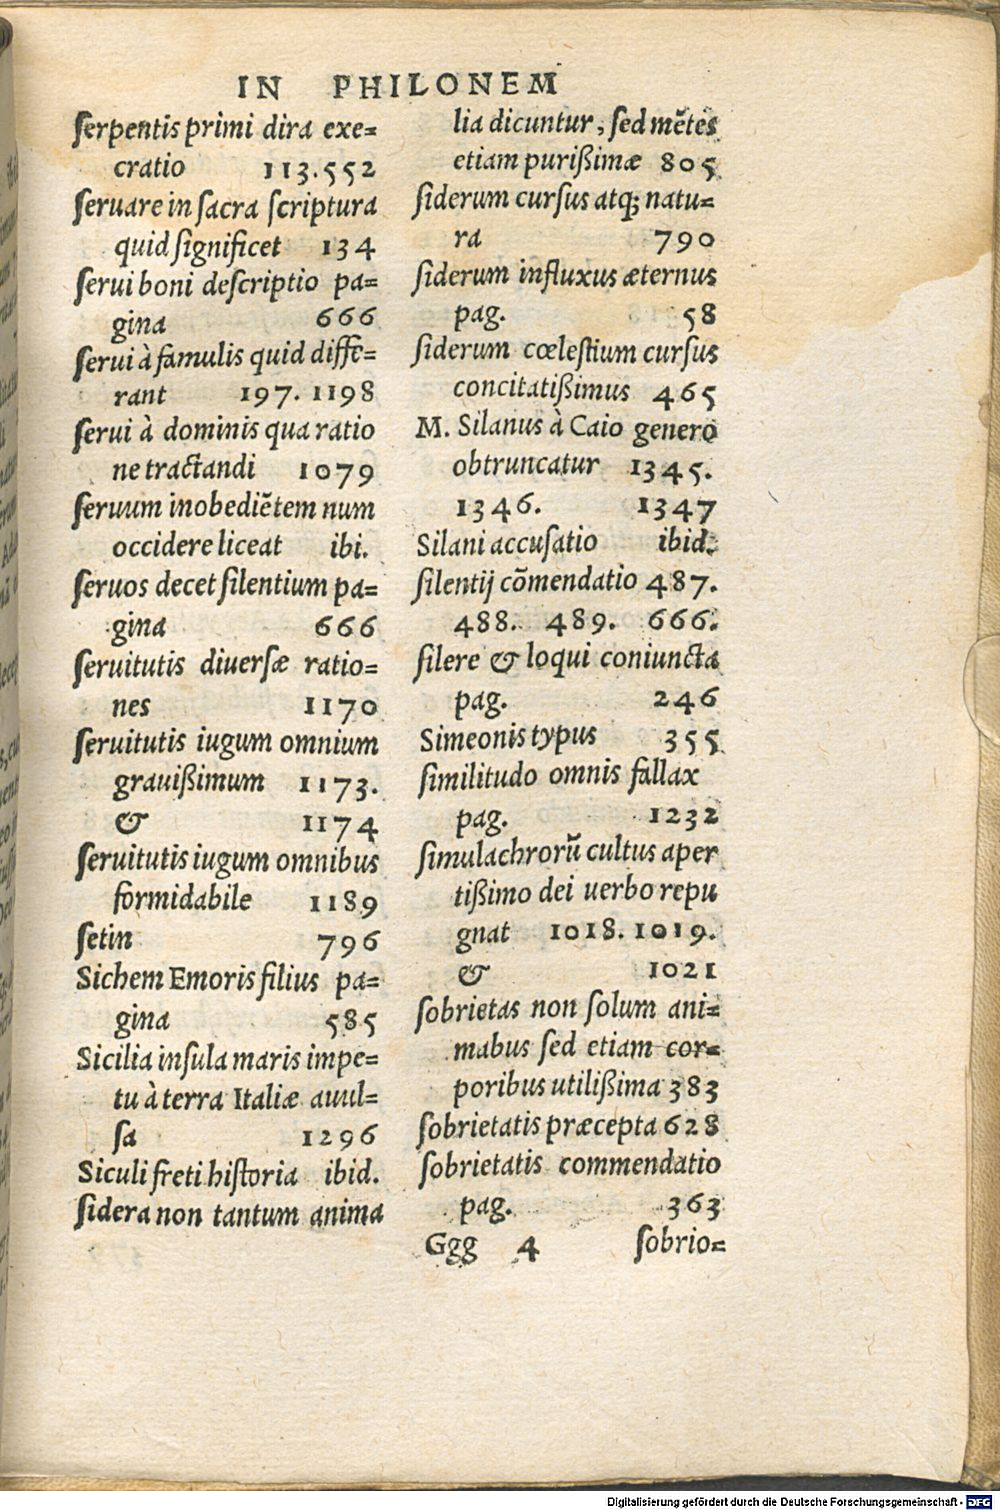 IN PHILONEM
ſerpentis primi dira exe=
cratio 113.552
ſeruare in ſacra ſcriptura
quid ſignificet 134
ſerui boni deſcriptio pa=
gina 666
ſerui à famulis quid diffe=
rant 197. 1198
ſerui à dominis qua ratio
ne tractandi 1079
ſeruum inobediētem num
occidere liceat ibi.
ſeruos decet ſilentium pa=
gina 666
ſeruitutis diuerſæ ratio=
nes 1170
ſeruitutis iugum omnium
grauißimum 1173.
& 1174
ſeruitutis iugum omnibus
formidabile 1189
ſetin 796
Sichem Emoris filius pa=
gina 585
Sicilia inſula maris impe=
tu à terra Italiæ auul=
ſa 1296
Siculi freti hiſtoria ibid.
ſidera non tantum anima
lia dicuntur, ſed mētes
etiam purißimæ 805
ſiderum curſus atq; natu=
ra 790
ſiderum influxus æternus
pag. 58
ſiderum cœleſtium curſus
concitatißimus 465
M. Silanus à Caio genero
obtruncatur 1345.
1346. 1347
Silani accuſatio ibid.
ſilentij cōmendatio 487.
488. 489. 666.
ſilere & loqui coniuncta
pag. 246
Simeonis typus 355
ſimilitudo omnis fallax
pag. 1232
ſimulachrorū cultus aper
tißimo dei uerbo repu
gnat 1018. 1019.
& 1021
ſobrietas non ſolum ani=
mabus ſed etiam cor=
poribus utilißima 383
ſobrietatis præcepta 628
ſobrietatis commendatio
pag. 363
Ggg 4 ſobrio=
Digitalisierung gefördert durch die Deutsche Forschungsgemeinschaft - DFG